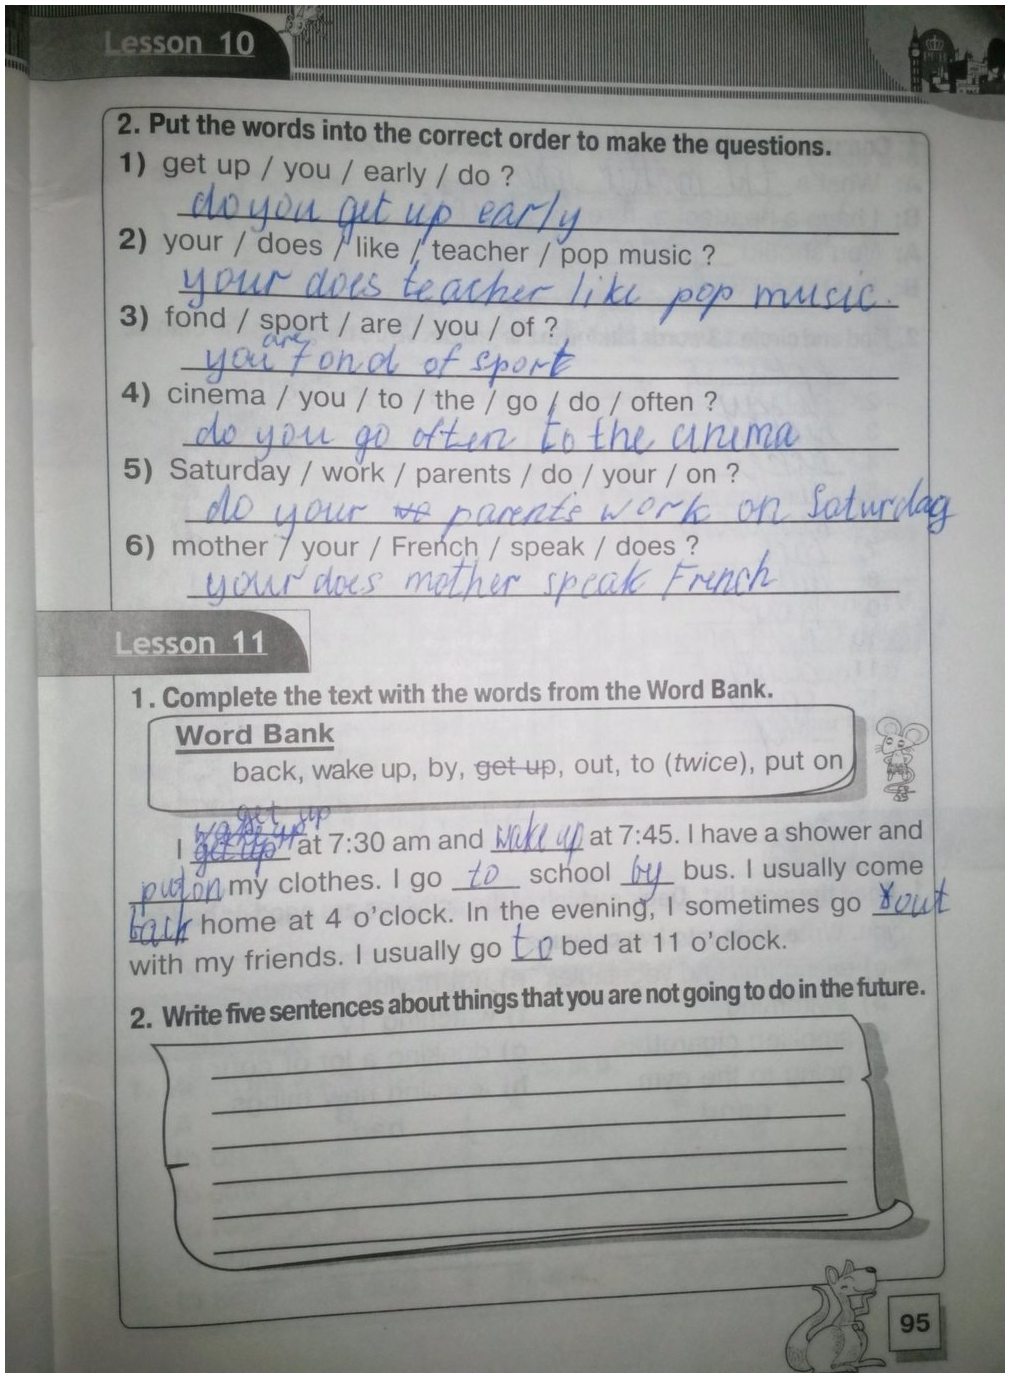 Lesson 10
2. Put the words into the correct order to make the questions.
1) get up / you / early / do ?
do you get up early
2) your / does / like / teacher / pop music ?
your does teacher like pop music.
3) fond / sport / are / you / of ?
are
you fond of sport
4) cinema / you / to / the / go / do / often ?
do you go often to the cinema
5) Saturday / work / parents / do / your / on ?
do your we parents work on Saturday
6) mother / your / French / speak / does ?
your does mother speak French
Lesson 11
1. Complete the text with the words from the Word Bank.
Word Bank
back, wake up, by, get up, out, to (twice), put on
get up
wake up
I get up at 7:30 am and wake up at 7:45. I have a shower and
put on my clothes. I go to school by bus. I usually come
back home at 4 o'clock. In the evening, I sometimes go out
with my friends. I usually go to bed at 11 o'clock.
2. Write five sentences about things that you are not going to do in the future.
95